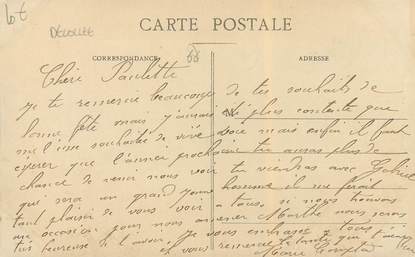 lot
CARTE POSTALE
CORRESPONDANCE
ADRESSE
68
Chère Paulette
Je te remercie beaucoup de tes souhaits de
bonne fête mais j'aurais été plus contente que
me l'use souhaitée de vive voie mais enfin il faut
espérer que l'année prochaine tu auras plus de
chance de venir nous voir tu viendras avec Gabriel
qui sera un grand jeune homme il me ferait
tant plaisir de vous voir a tous, si nous trouvons
une occasion pour nous mener Marthe nous serons
très heureuse de l'avoir. Je vous embrasse a tous
et vous remercie
Marie